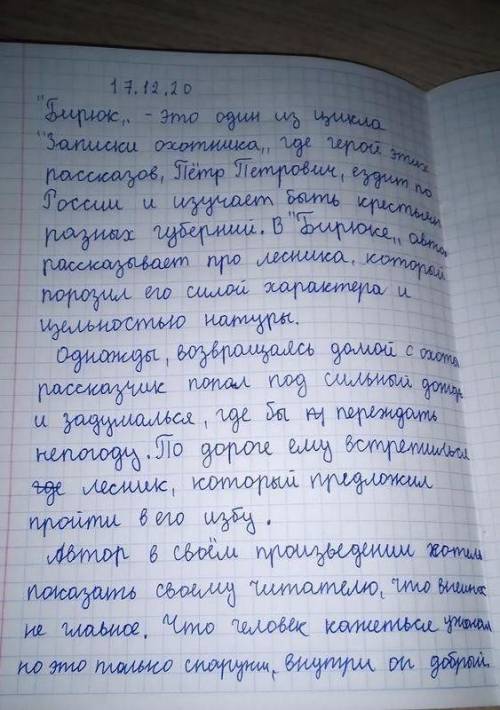 17.12.20
"Бирюк„ - это один из цикла
"Записки охотника„, где герой этих
рассказов, Пётр Петрович, ездит по
России и изучает быть крестьян
разных губерний. В "Бирюке„ автор
рассказывает про лесника, который
порозил его силой характера и
цельностью натуры.
Однажды, возвращаясь домой с охоты
рассказчик попал под сильный дождь
и задумалься, где бы переждать
непогоду. По дороге ему встретилься
где лесник, который предложил
пройти в его избу.
Автор в своём произведении хотель
показать своему читателю, что внешнос
не главное. Что человек кажеться
но это только снаружи, внутри он добрый.